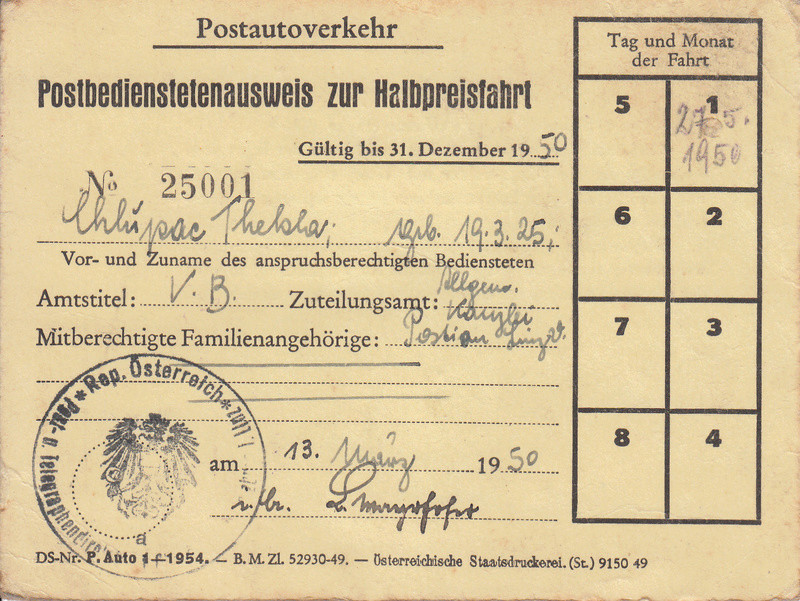 Postautoverkehr
Postbedienstetenausweis zur Halbpreisfahrt
Gültig bis 31. Dezember 1950
No 25001
Chlupac Thekla, grb. 19.3.25,
Vor- und Zuname des anspruchsberechtigten Bediensteten
Amtstitel: V. B. Zuteilungsamt: Allgem.
Kanzlei
Mitberechtigte Familienangehörige:
Rep. Österreich
am 13. März 1950
DS-Nr. P. Auto 1-1954. — B. M. Zl. 52930-49. — Österreichische Staatsdruckerei. (St.) 9150 49
Tag und Monat
der Fahrt
5 1
27. 5.
1950
6 2
7 3
8 4